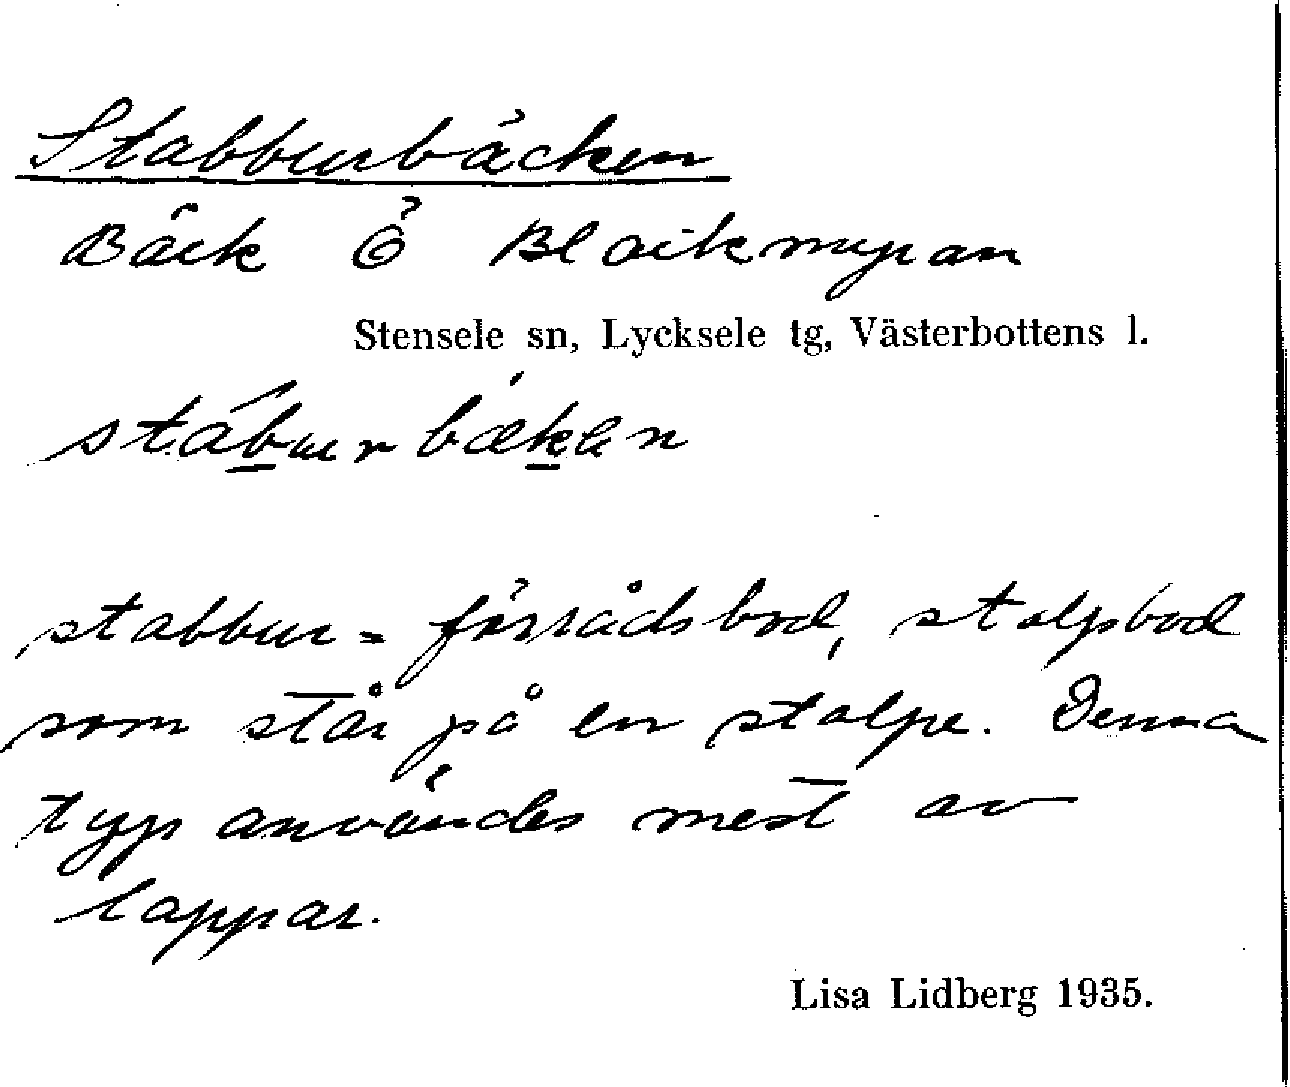 Stabburbäcken
Bäck Ö Blaikmyran
Stensele sn, Lycksele tg, Västerbottens l.
stáburbæken
stabbur = förrådsbod, stolpbod
som står på en stolpe. Denna
typ användes mest av
lappar.
Lisa Lidberg 1935.